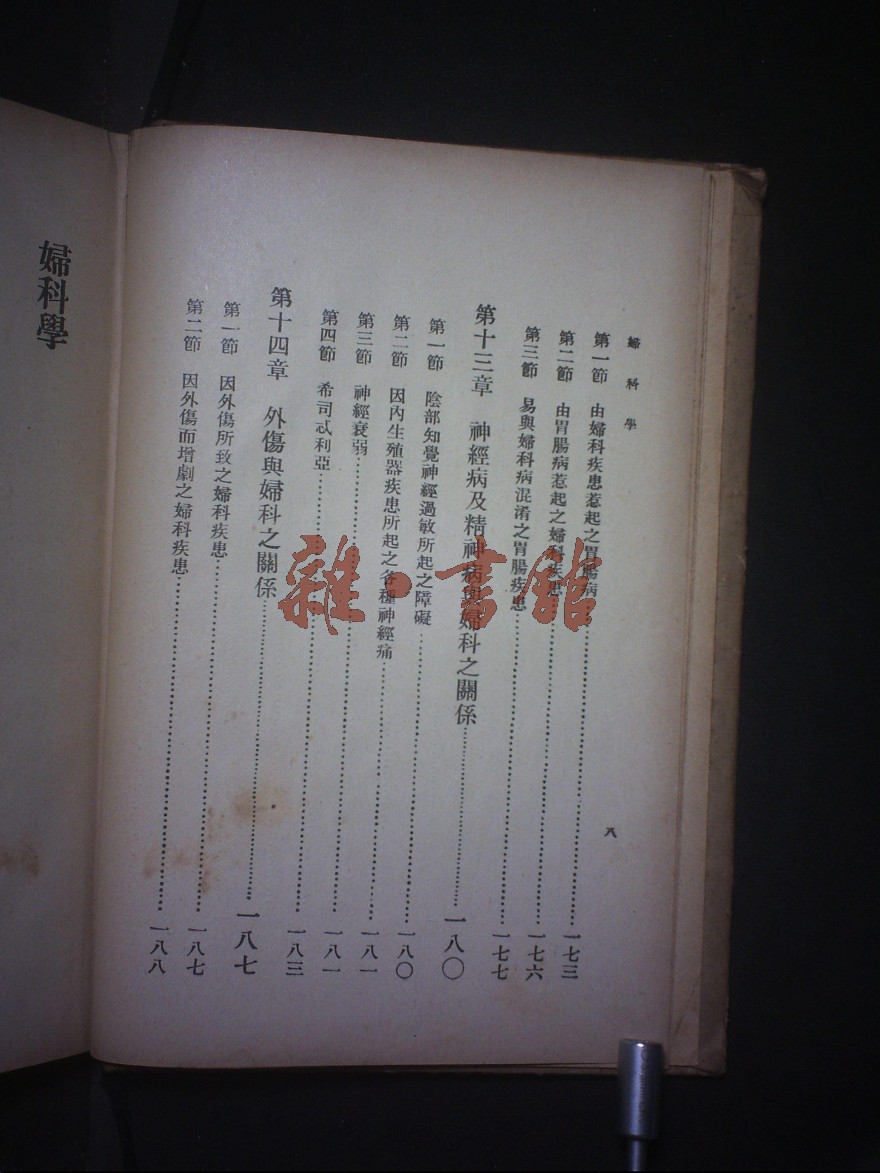 婦科學
八
第一節 由婦科疾患惹起之胃腸病……一七三
第二節 由胃腸病惹起之婦科疾患……一七六
第三節 易與婦科病混淆之胃腸疾患……一七七
第十三章 神經病及精神病與婦科之關係……一八〇
第一節 陰部知覺神經過敏所起之障礙……一八〇
第二節 因內生殖器疾患所起之各種神經痛……一八一
第三節 神經衰弱……一八一
第四節 希司忒利亞……一八三
第十四章 外傷與婦科之關係……一八七
第一節 因外傷所致之婦科疾患……一八七
第二節 因外傷而增劇之婦科疾患……一八八
婦科學
雜·書館